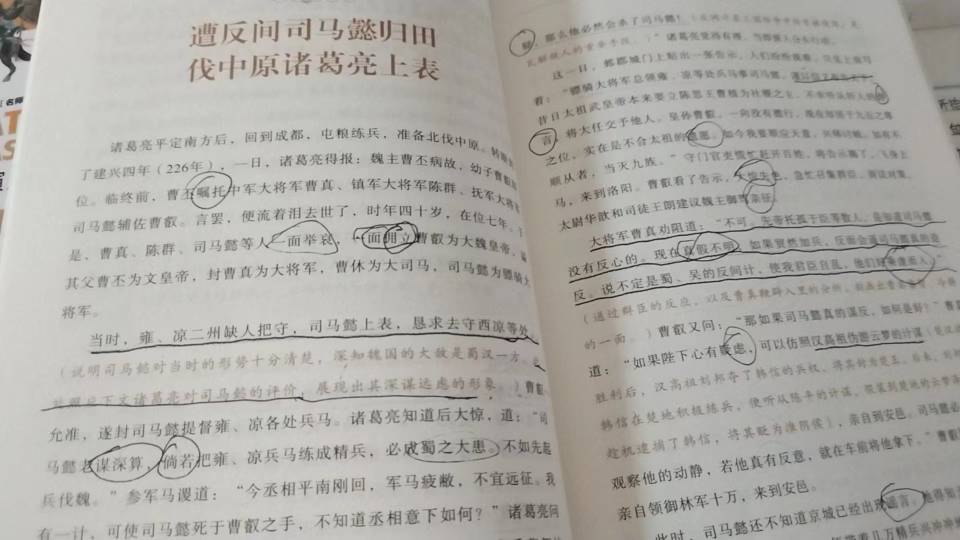 遭反间司马懿归田
伐中原诸葛亮上表
诸葛亮平定南方后，回到成都，屯粮练兵，准备北伐中原。转眼
了建兴四年（226年），一日，诸葛亮得报：魏主曹丕病故，幼子曹叡
位。临终前，曹丕嘱托中军大将军曹真、镇军大将军陈群、抚军大将军
司马懿辅佐曹叡。言罢，便流着泪去世了，时年四十岁，在位七年。于
是，曹真、陈群、司马懿等人一面举哀，一面拥立曹叡为大魏皇帝，谥
其父曹丕为文皇帝，封曹真为大将军，曹休为大司马，司马懿为骠骑大
将军。
当时，雍、凉二州缺人把守，司马懿上表，恳求去守西凉等处
（说明司马懿对当时的形势十分清楚，深知魏国的大敌是蜀汉一方。
下文诸葛亮对司马懿的评价，展现出其深谋远虑的形象。）曹叡
允准，遂封司马懿提督雍、凉各处兵马。诸葛亮知道后大惊，道：“司
马懿老谋深算，倘若把雍、凉兵马练成精兵，必成蜀之大患。不如先起
兵伐魏。”参军马谡道：“今丞相平南刚回，军马疲敝，不宜远征。我
有一计，可使司马懿死于曹叡之手，不知道丞相意下如何？”诸葛亮问
疑，那么他必然会杀了司马懿！
”诸葛亮觉得有理，当即派人分头行动。
这一日，邺郡城门上贴出一张告示，人们纷纷观看，只见上面写
着：“骠骑大将军总领雍、凉等处兵马事司马懿，
昔日太祖武皇帝本来要立陈思王曹植为社稷之主，不幸听从奸人的谗
言，将大任交予他人。皇孙曹叡，一向没有德行，现在却居于九五之尊
之位，实在是不合太祖的遗愿。如今我要顺应天意，兴师讨贼。如有不
顺从者，当灭九族。”守门官吏慌忙赶开百姓，将告示揭了，飞身上
马，来到洛阳。曹叡看了告示，大惊失色，急忙召集群臣，商议对策。
太尉华歆和司徒王朗建议魏主御驾亲征。
大将军曹真劝阻道：“不可。先帝托孤于臣等数人，是知道司马懿
没有反心的。现在真假不明，如果贸然加兵，反而会逼司马懿真的造
反。说不定是蜀、吴的反间计，使我君臣自乱，他们好乘虚而入。”
（通过群臣的反应，以及曹真鞭辟入里的分析，
的一面。）曹叡又问：“那如果司马懿真的谋反，如何是好！”曹真
道：“如果陛下心有疑虑，可以仿照汉高祖伪游云梦的计谋（楚汉
胜利后，汉高祖刘邦夺了韩信的兵权，将其封为楚王。后来，刘邦
韩信在楚地积极练兵，便听从陈平的计谋，假装到楚地的云梦泽
趁机逮捕了韩信，将其贬为淮阴侯），亲自到安邑，司马懿必
观察他的动静，若他真有反意，就在车前将他拿下。”曹叡
亲自领御林军十万，来到安邑。
此时，司马懿还不知道京城已经出现谣言，他得知
几万精兵兴冲冲地